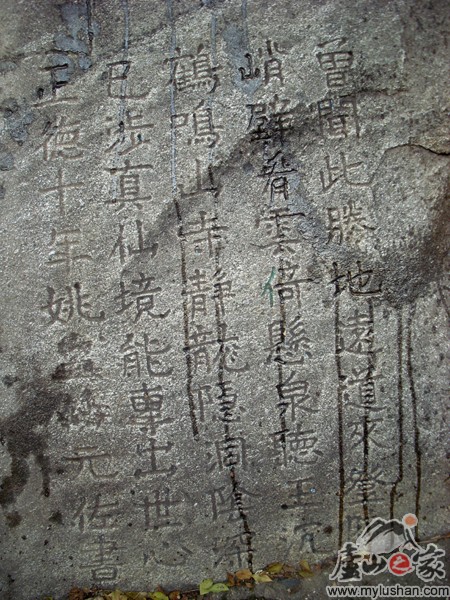 曾聞此勝地遠道來登臨
峭壁看雲倚懸泉聽玉沉
鶴鳴山寺靜龍隱洞陰深
已涉真仙境能專出世心
正德十年姚元佐書
廬山之家
www.mylushan.com